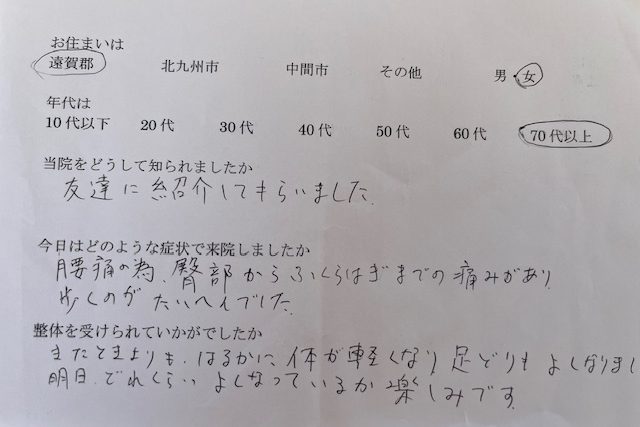 お住まいは
遠賀郡 北九州市 中間市 その他 男・女
年代は
10代以下 20代 30代 40代 50代 60代 70代以上
当院をどうして知られましたか
友達に紹介してもらいました。
今日はどのような症状で来院しましたか
腰痛の為、臀部からふくらはぎまでの痛みがあり
歩くのがたいへんでした。
整体を受けられていかがでしたか
きたときよりも、はるかに、体が軽くなり足どりもよくなりまし
明日、どれくらいよくなっているか楽しみです。